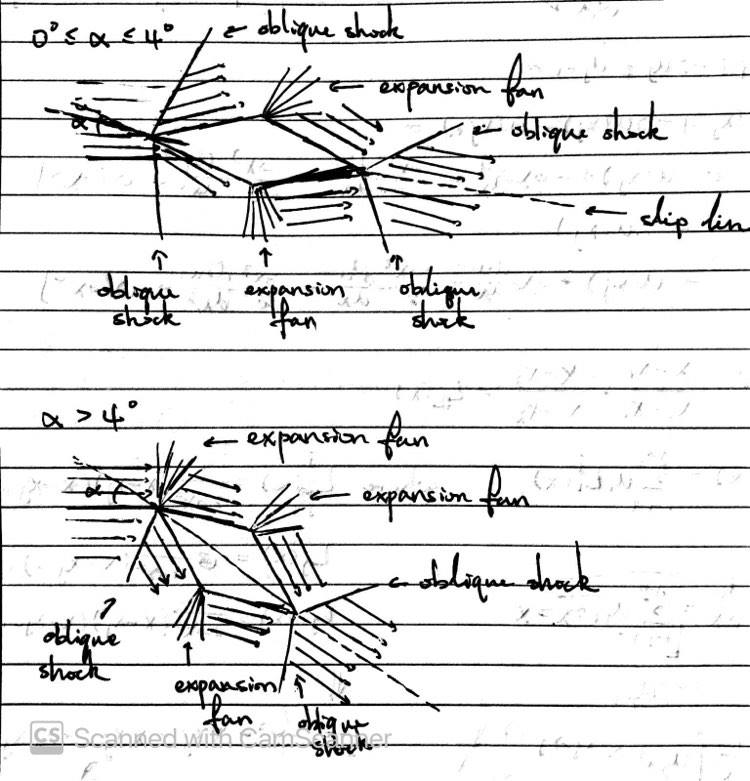 0° ≤ α ≤ 4°
← oblique shock
← expansion fan
α
← oblique shock
← slip lin
↑ ↑ ↑
oblique expansion oblique
shock fan shock
α > 4°
← expansion fan
α
← expansion fan
← oblique shock
oblique
shock
expansion
fan
oblique
shock
CS Scanned with CamScanner